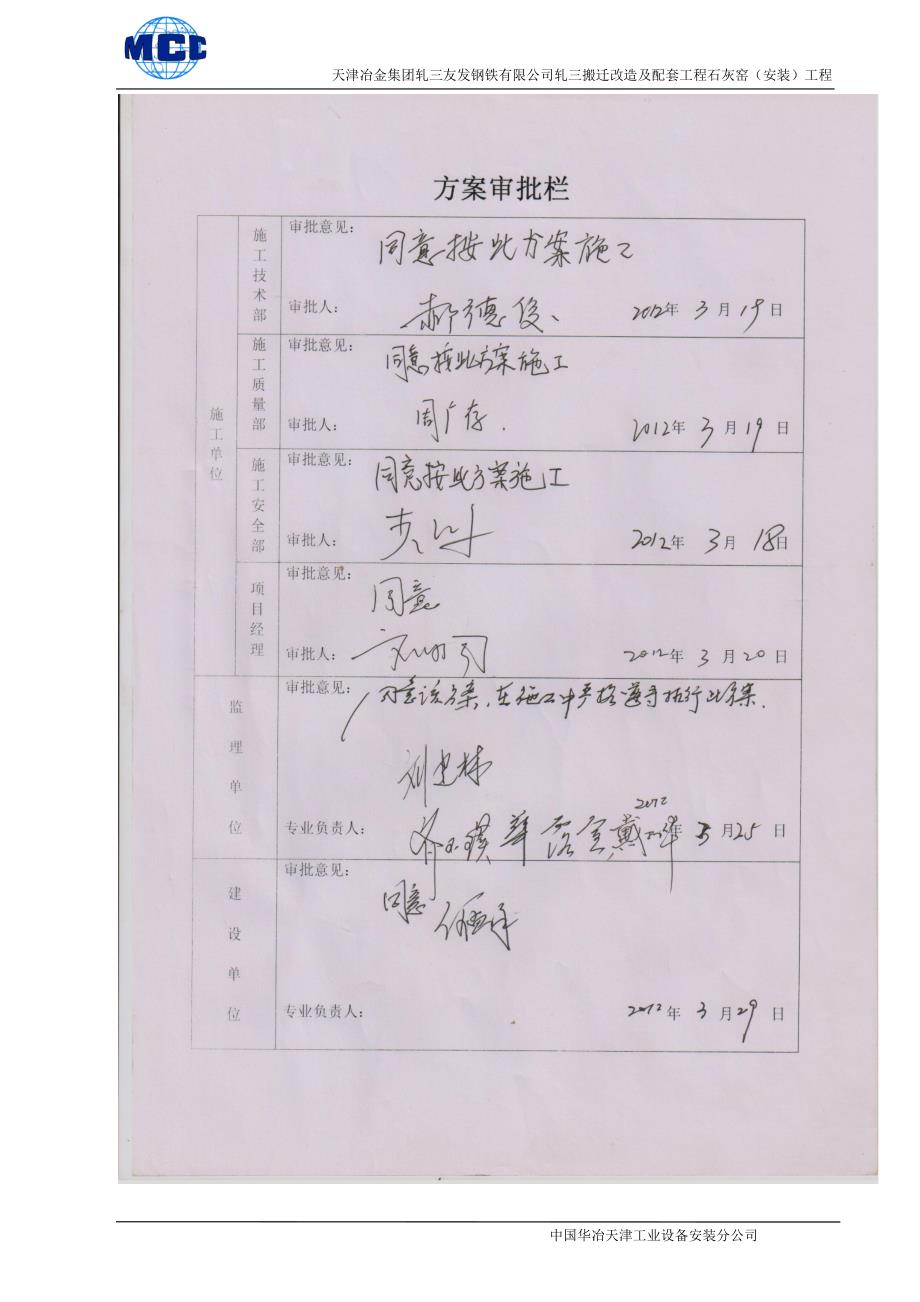 MCC
天津冶金集团轧三友发钢铁有限公司轧三搬迁改造及配套工程石灰窑（安装）工程
方案审批栏
施工单位
施工技术部
审批意见：
同意按此方案施工
审批人：
郝德俊
2012年 3 月 19 日
施工质量部
审批意见：
同意按此方案施工
审批人：
周广存
2012年 3 月 19 日
施工安全部
审批意见：
同意按此方案施工
审批人：
2012年 3 月 18日
项目经理
审批意见：
同意
审批人：
2012年 3 月 20 日
监理单位
审批意见：
同意该方案，在施工中严格遵守执行此方案．
专业负责人：
2012
年 3 月 25 日
建设单位
审批意见：
同意
专业负责人：
2012 年 3 月 29 日
中国华冶天津工业设备安装分公司